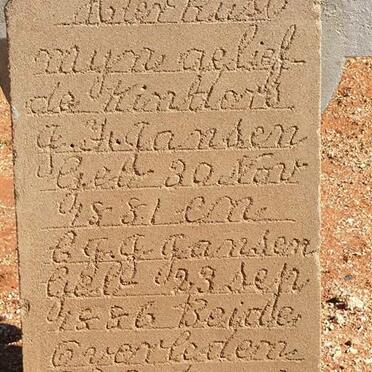 Hier Rust
myn gelief-
de Kinders
J. J. Jansen
Geb 30 Nov
1881 en
C J J Jansen
Geb 23 sep
1886 Beide
Overleden